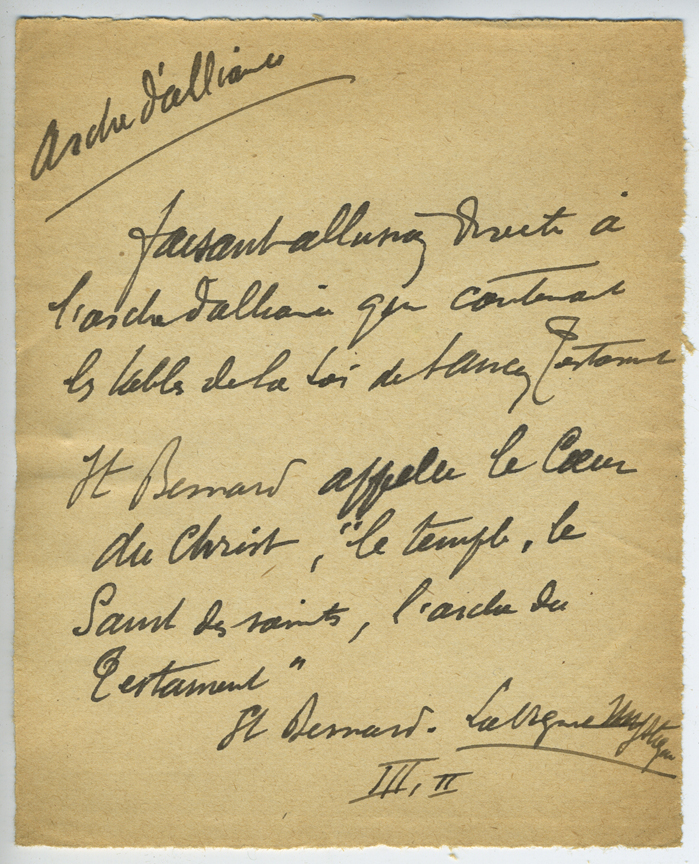 Arche d'alliance
faisant allusion directe à
l'arche d'alliance qui contenait
les tables de la Loi de l'ancien Testament
St Bernard appelle le Cœur
du Christ, "le temple, le
Saint des saints, l'arche du
Testament"
St Bernard. La Vigne mystique
III, II